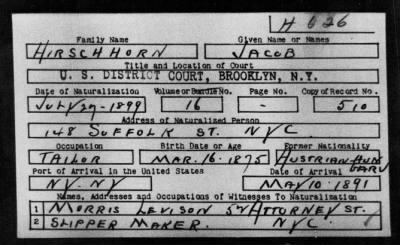 H 626
Family Name Given Name or Names
HIRSCHHORN JACOB
Title and Location of Court
U. S. DISTRICT COURT, BROOKLYN, N.Y.
Date of Naturalization Volume or Bundle No. Page No. Copy of Record No.
JULY 29-1899 16 - 510
Address of Naturalized Person
148 SUFFOLK ST. NYC.
Occupation Birth Date or Age Former Nationality
TAILOR MAR. 16. 1875 AUSTRIAN HUNGARY
Port of Arrival in the United States Date of Arrival
NY. NY MAY 10. 1891
Names, Addresses and Occupations of Witnesses To Naturalization
1 MORRIS LEVISON ATTORNEY ST.
2 SLIPPER MAKER. NYC.